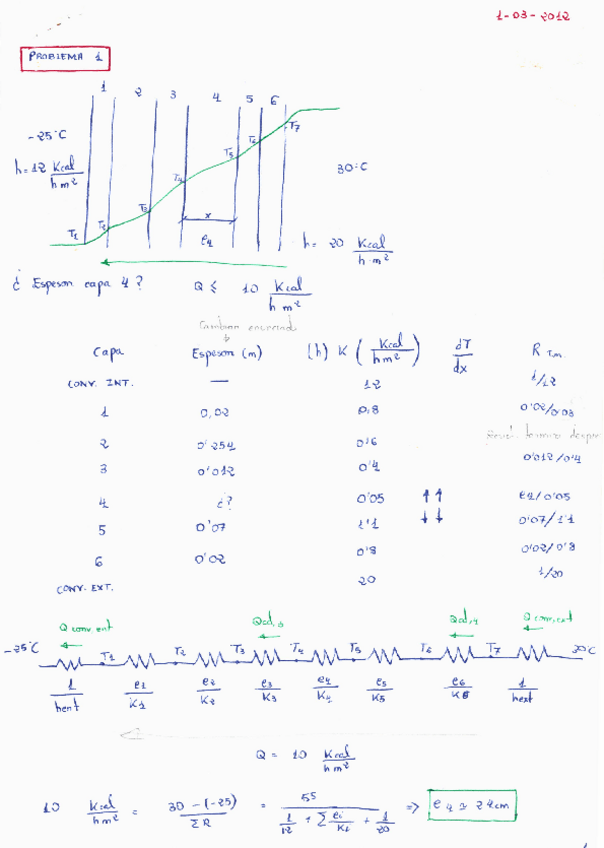 1-03-2012
PROBLEMA 1
1 2 3 4 5 6
-25°C
h=12 Kcal/h m²
T1 T2 T3 T4 T5 T6 T7
30°C
x
e4
h= 20 Kcal/h·m²
¿ Espesor capa 4 ? Q ≤ 10 Kcal/h m²
Cambian
Capa Espesor (m) (h) K (Kcal/h m²) dT/dx R T.m.
CONV. INT. — 12 1/12
1 0,02 0,8 0'02/0'03
2 0'254 0'6
3 0'012 0'4 0'012/0'4
4 ¿? 0'05 ↑↑ e4/0'05
5 0'07 1'1 ↓↓ 0'07/1'1
6 0'02 0'8 0'02/0'8
CONV. EXT. 20 1/20
Q conv.ent Qcd,3 Qcd,4 Q conv.ext
-25°C T1 T2 T3 T4 T5 T6 T7 30°C
1/hent e1/K1 e2/K2 e3/K3 e4/K4 e5/K5 e6/K6 1/hext
Q = 10 Kcal/h m²
10 Kcal/h m² = 30 - (-25)/ΣR = 55/(1/12 + Σ ei/Ki + 1/20) => e4 ≈ 24cm